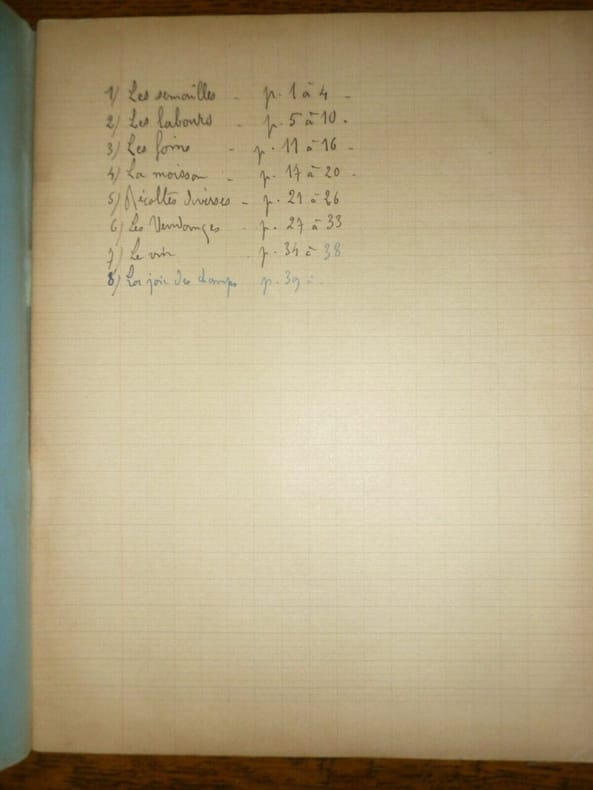 1) Les semailles - p. 1 à 4 -
2) Les labours - p. 5 à 10 -
3) Les foins - p. 11 à 16 -
4) La moisson - p. 17 à 20 -
5) Récoltes diverses - p. 21 à 26
6) Les Vendanges - p. 27 à 33
7) Le vin - p. 34 à 38
8) La joie des champs p. 39 à